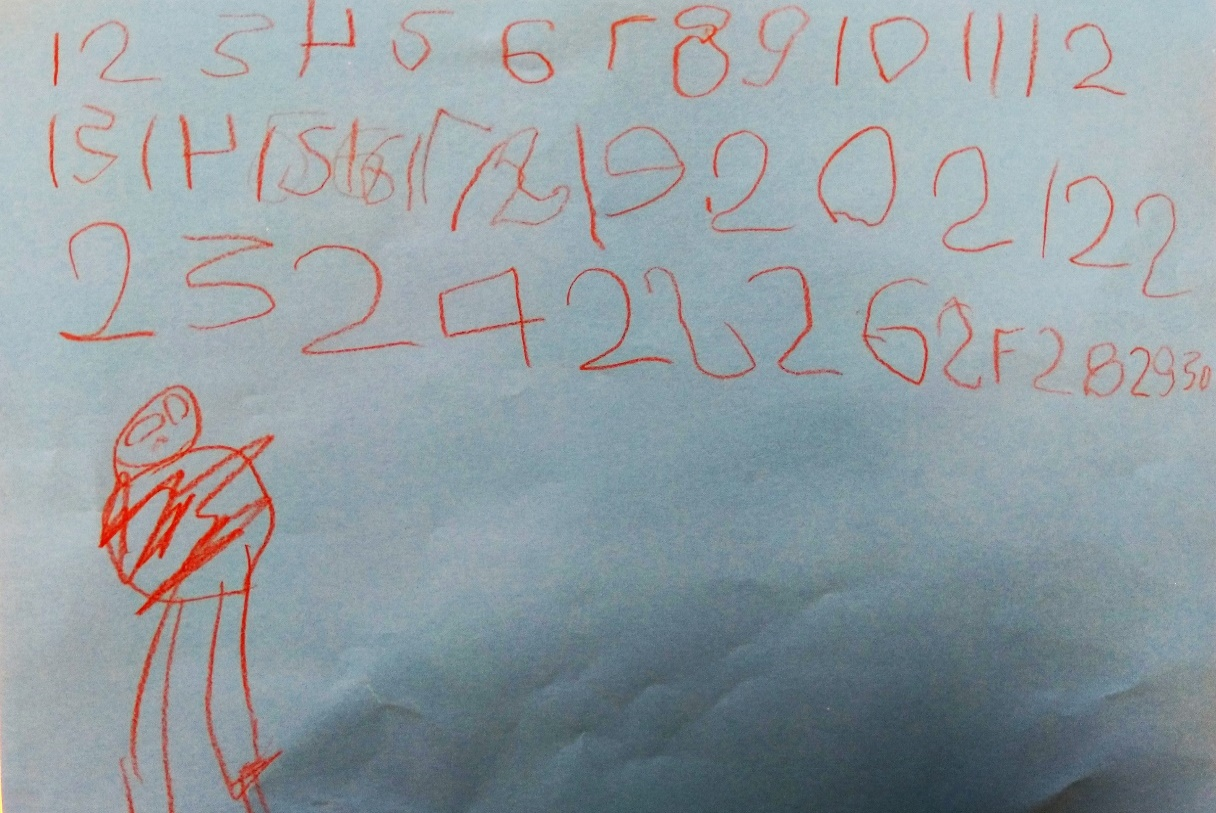 1 2 3 4 5 6 7 8 9 10 11 12
13 14 15 16 17 18 19 20 21 22
23 24 25 26 27 28 29 30